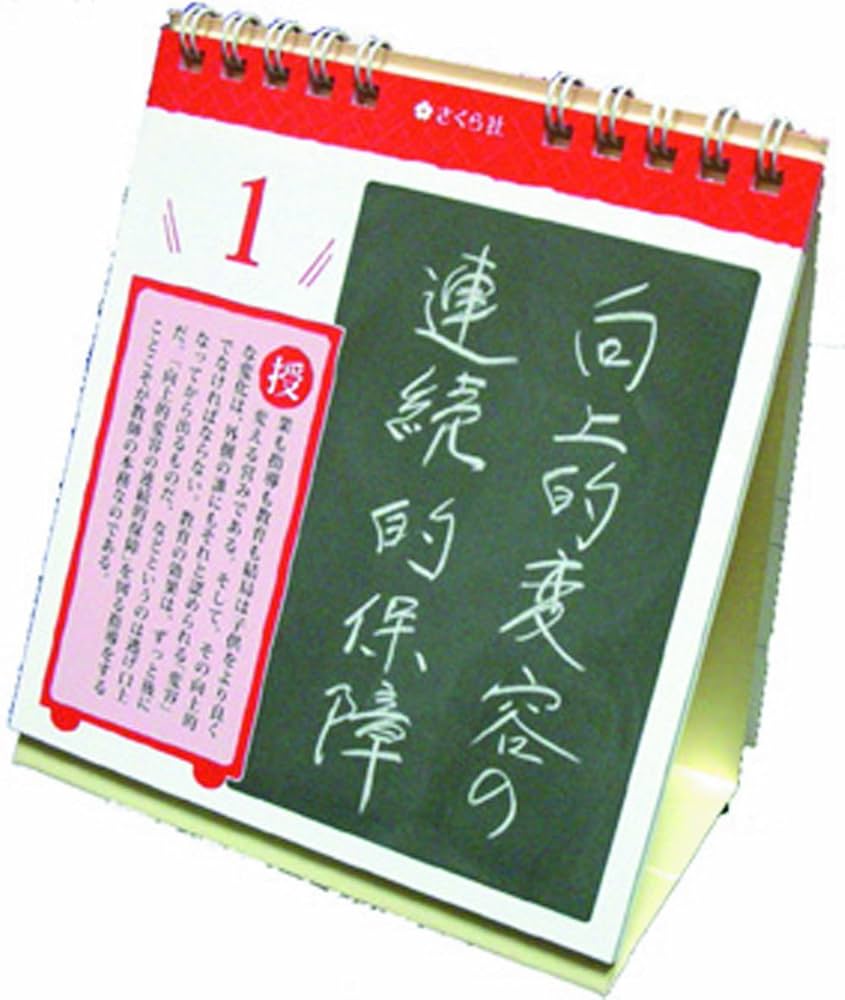 さくら社
1
向上的変容の
連続的保障
授業も指導も教育も結局は子供をより良く
変える営みである。そして、その向上的
な変化は、外側の誰にもそれと認められる「変容」
でなければならない。教育の効果は、ずっと後に
なってから出るものだ、などというのは逃げ口上
だ。「向上的変容の連続的保障」を図る指導をする
ことこそが教師の本務なのである。